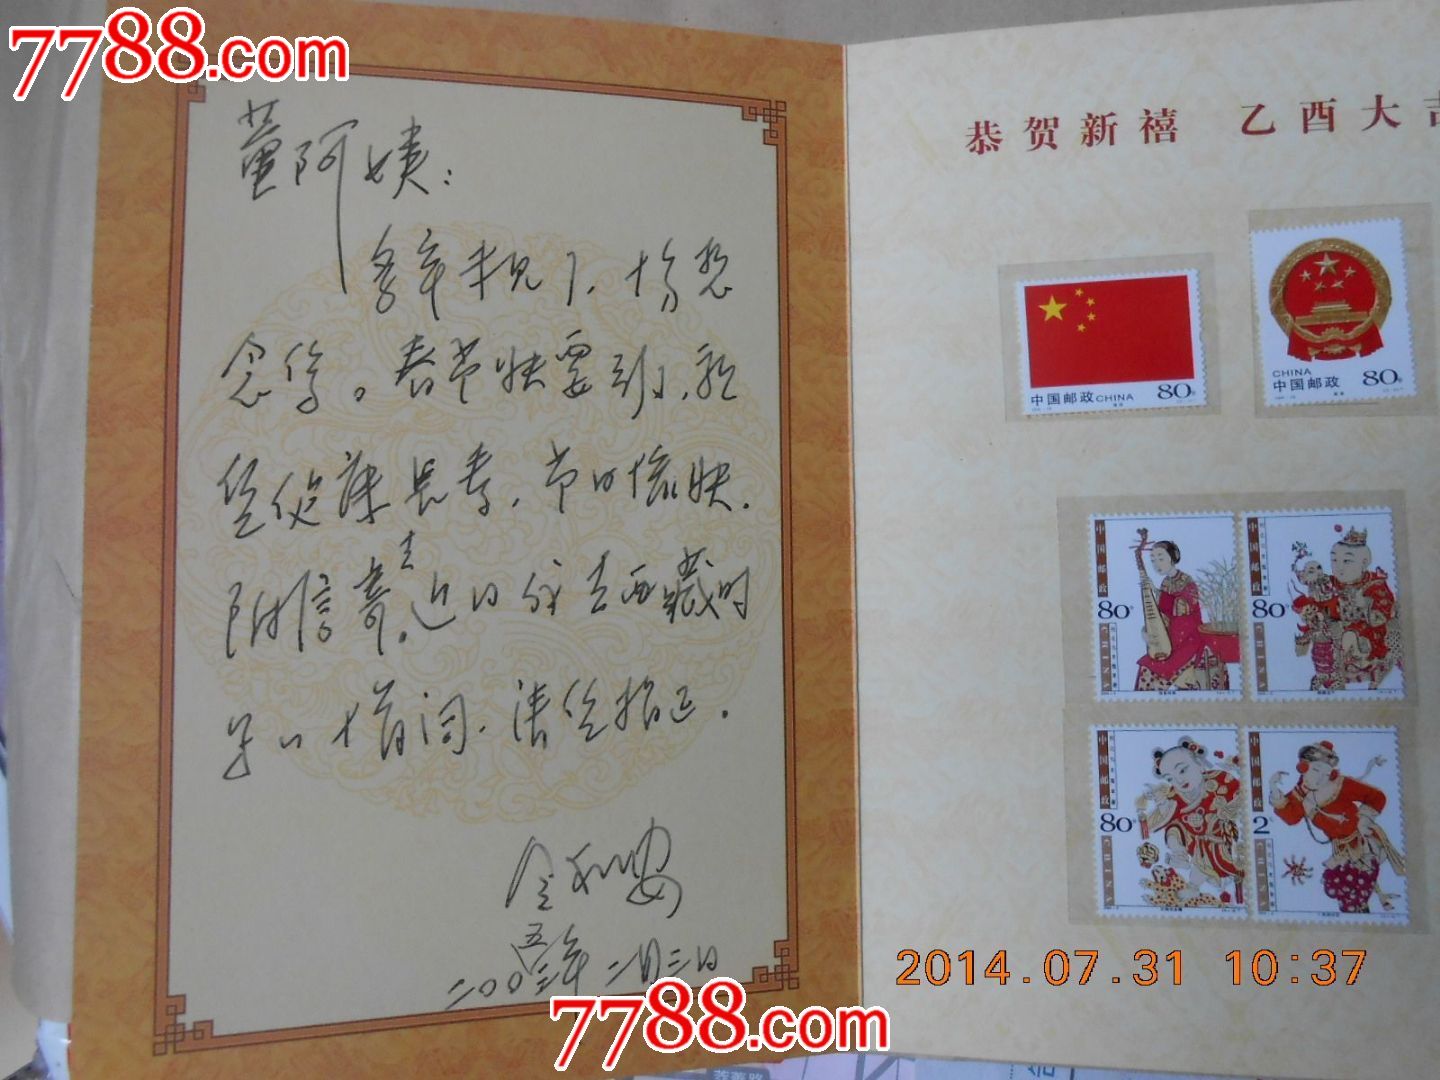 7788.com
董阿姨：
多年未见了，十分想
念您。春节快要到了，祝
您健康长寿，节日愉快。
附信寄去近日我去西藏时
写的十首词，请您指正。
二00五年二月三日
恭贺新禧 乙酉大吉
中国邮政 CHINA 80分
CHINA
中国邮政 80分
中国邮政 80分 CHINA
中国邮政 80分 CHINA
中国邮政 80分 CHINA
中国邮政 2 CHINA
2014.07.31 10:37
7788.com